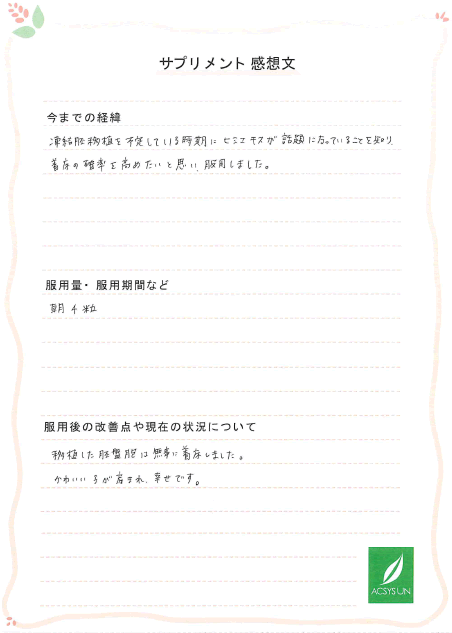 サプリメント 感想文
今までの経緯
凍結胚移植を予定している時期に ヒシエキスが 話題になっていることを知り、
着床の確率を高めたいと思い、服用しました。
服用量・服用期間など
朝 4 粒
服用後の改善点や現在の状況について
移植した胚盤胞は無事に着床しました。
かわいい子が産まれ、幸せです。
ACSYSUN